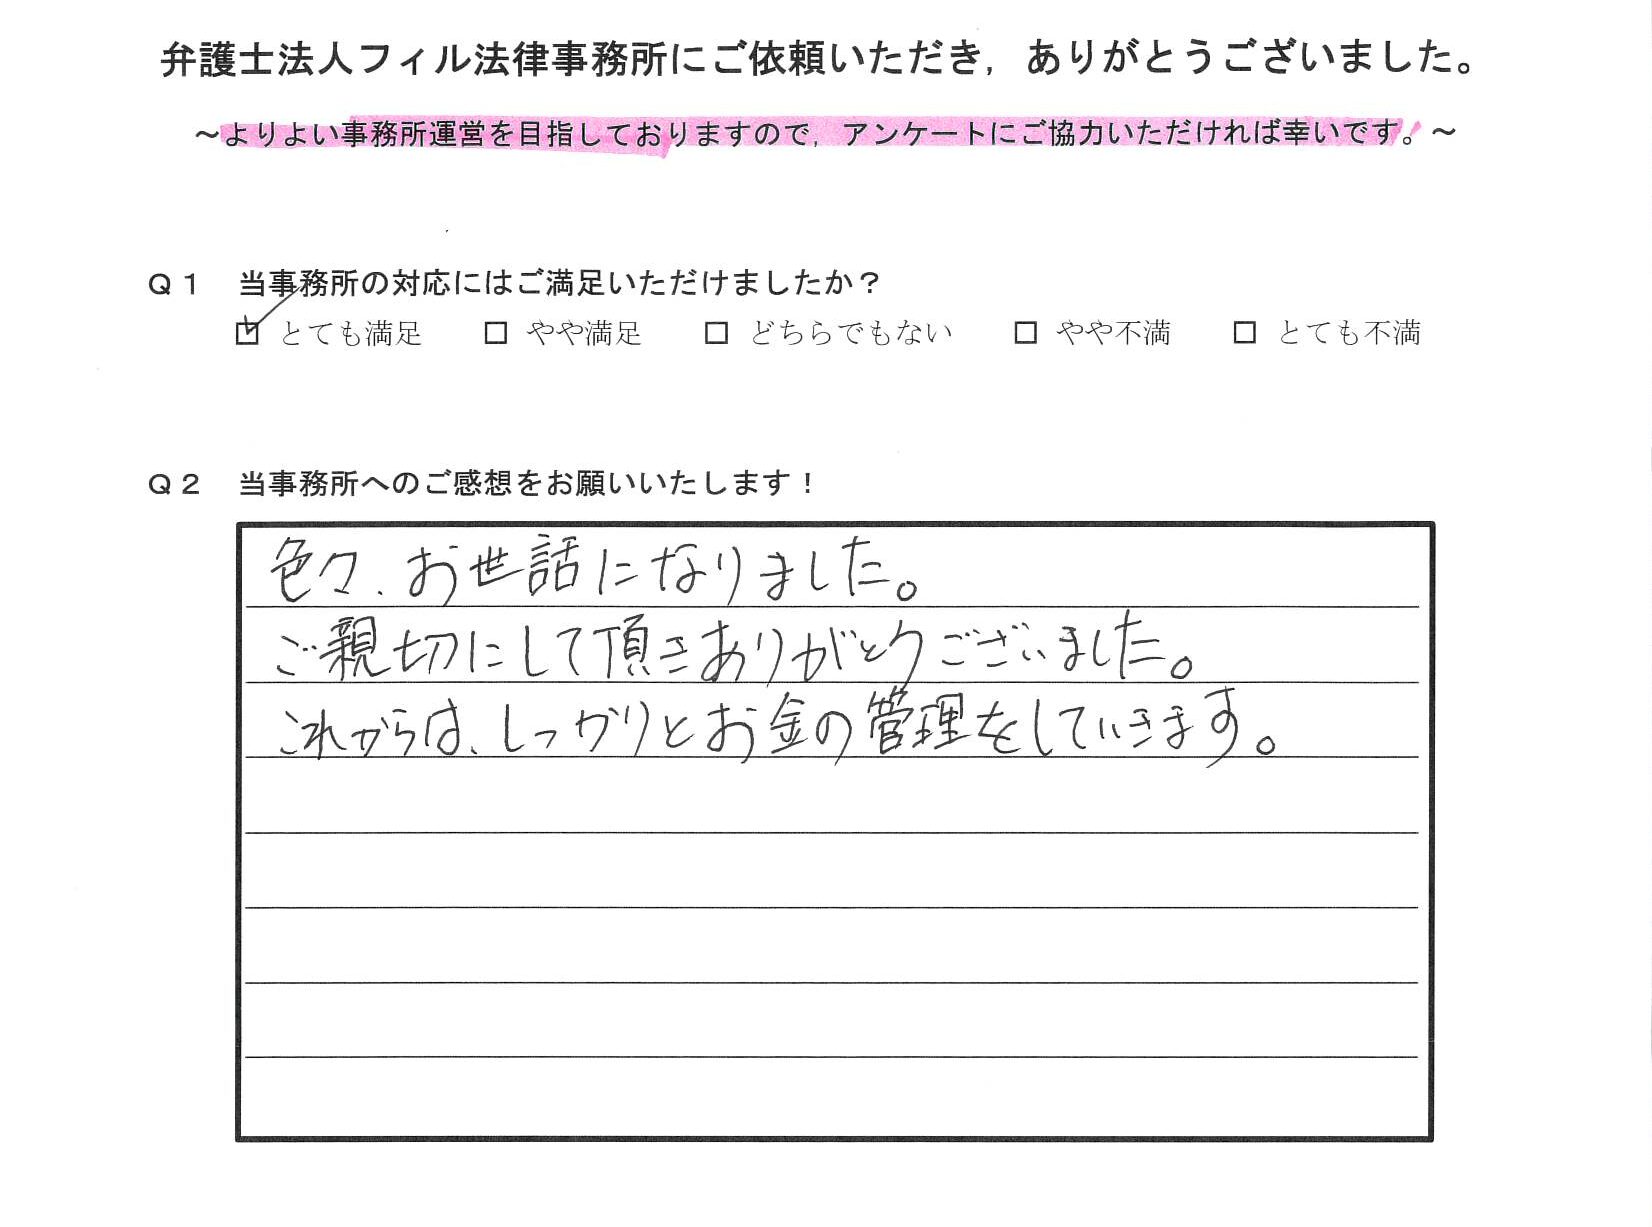 弁護士法人フィル法律事務所にご依頼いただき，ありがとうございました。
～よりよい事務所運営を目指しておりますので，アンケートにご協力いただければ幸いです。～
Ｑ１　当事務所の対応にはご満足いただけましたか？
☑ とても満足　□ やや満足　□ どちらでもない　□ やや不満　□ とても不満
Ｑ２　当事務所へのご感想をお願いいたします！
色々、お世話になりました。
ご親切にして頂きありがとうございました。
これからは、しっかりとお金の管理をしていきます。